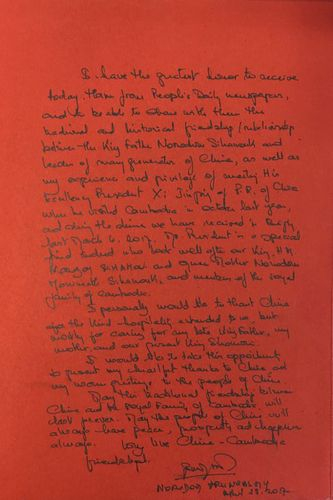 I have the greatest honor to receive
today, them from People's Daily newspaper,
and to be able to share with them the
tradional and historical friendship/relationship
between the King Father Norodom Sihanouk and
leader of many generation of China, as well as
my experience and privilege of meeting His
Excellency President Xi Jinping of P.R. of China
when he visited Cambodia in October last year,
and during the dinner we have received in Beijing
last March 6, 2017. The President is a special
friend who look well after our King, H.M
Norodom SIHAMONI and Queen Mother Norodom
Monineath Sihanouk, and members of the royal
family of Cambodia.
I personally would like to thank China
for the kind hospitality extended to us, but
for caring for my late King Father, my
mother and our present King Sihamoni.
I would like to take this opportunity
to present my thanks to China and
my warm greetings to the people of China
May this traditional friendship between
China and the Royal Family of Cambodia will
last forever. May the people of China will
always have peace, prosperity, and happiness
always. Long live China - Cambodia
friendship.
NORODOM
2017